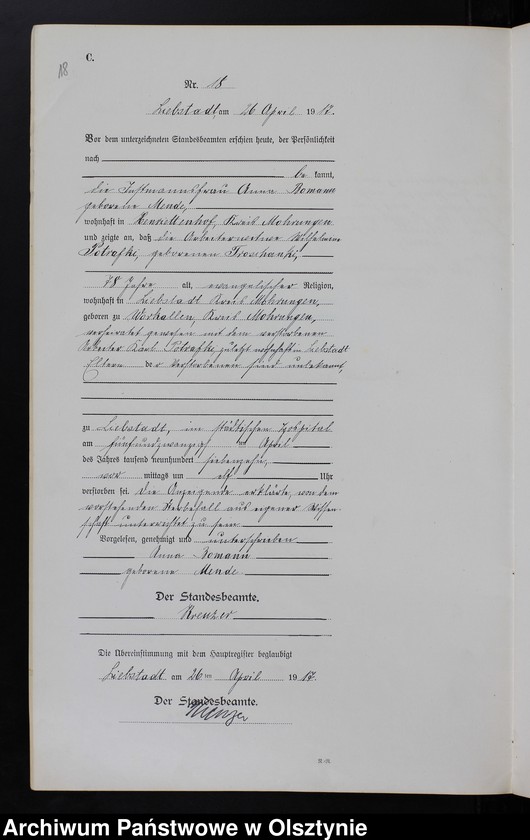 18
C.
Nr. 18
Liebstadt, am 26 April 1917.
Vor dem unterzeichneten Standesbeamten erschien heute, der Persönlichkeit
nach
be kannt,
die Instmannsfrau Anna Bomann
geborene Mende,
wohnhaft in Henriettenhof, Kreis Mohrungen
und zeigte an, daß die Arbeiterwitwe Wilhelmine
geborenen
78 Jahre alt, evangelischer Religion,
wohnhaft in Liebstadt Kreis Mohrungen,
geboren zu Workallen, Kreis Mohrungen,
verheiratet gewesen mit dem verstorbenen
Arbeiter Karl zuletzt wohnhaft in Liebstadt
Eltern der Verstorbenen sind unbekannt
zu Liebstadt, im städtischen Hospital
am fünfundzwanzigsten April
des Jahres tausend neunhundert siebenzehn,
vor mittags um elf Uhr
verstorben sei. Die Anzeigende erklärte, von dem
vorstehenden Sterbefall aus eigener Wissen-
schaft unterrichtet zu sein
Vorgelesen, genehmigt und unterschrieben
Anna Bomann
geborene Mende
Der Standesbeamte.
Kreuzer
Die Übereinstimmung mit dem Hauptregister beglaubigt
Liebstadt am 26ten April 1917
Der Standesbeamte.
Kreuzer
Archiwum Państwowe w Olsztynie